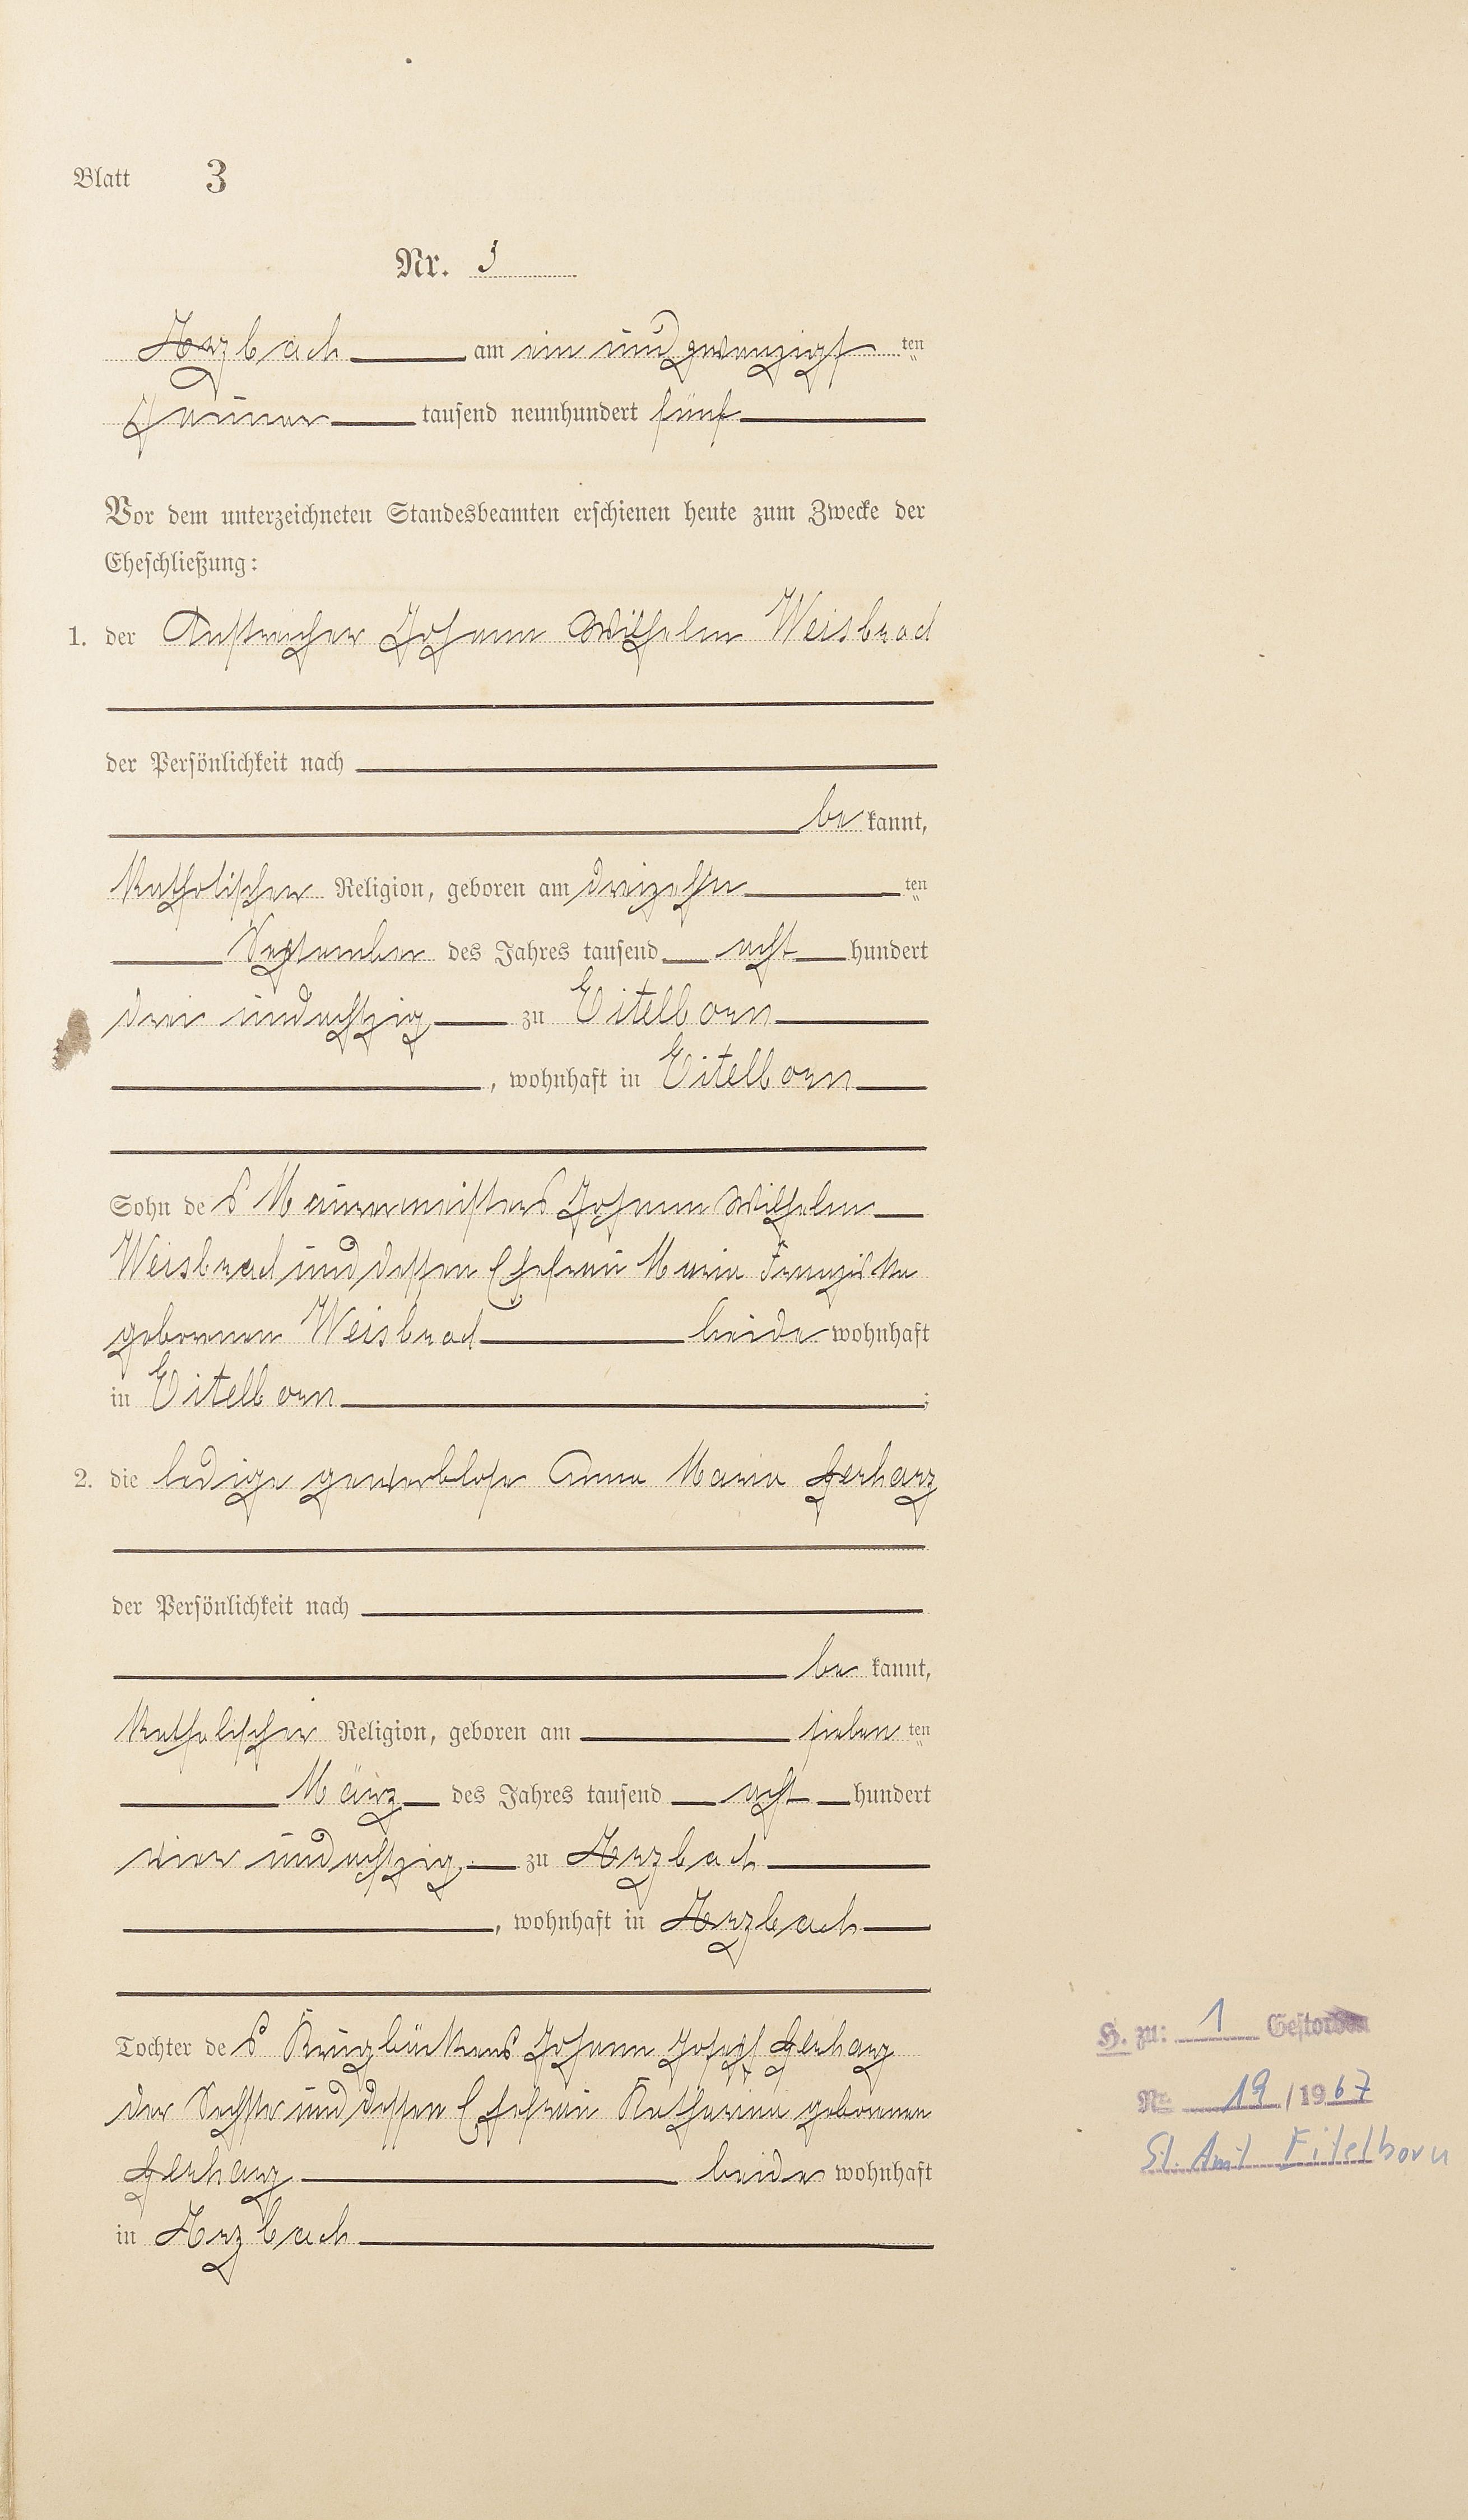 Blatt 3
Nr. 3
Arzbach am ein und zwanzigsten
Januar tausend neunhundert fünf
Vor dem unterzeichneten Standesbeamten erschienen heute zum Zwecke der
Eheschließung:
1. der Anstreicher Johann Wilhelm Weisbrod
der Persönlichkeit nach
be kannt,
katholischer Religion, geboren am dreizehn ten
September des Jahres tausend acht hundert
drei undachtzig zu Eitelborn
, wohnhaft in Eitelborn
Sohn des Maurermeisters Johann Wilhelm
Weisbrod und dessen Ehefrau Maria Franziska
geborenen Weisbrod beide wohnhaft
in Eitelborn ;
2. die ledige gewerblose Anna Maria Gerharz
der Persönlichkeit nach
be kannt,
katholischer Religion, geboren am sieben ten
März des Jahres tausend acht hundert
vier undachtzig zu Arzbach
, wohnhaft in Arzbach
Tochter des Krugbäckers Johann Josef Gerharz
der Sechste und dessen Ehefrau Katharina geborenen
Gerharz beide wohnhaft
in Arzbach
H. zu: 1 Gestorben
Nr. 19 / 1967
St. Amt Eitelborn